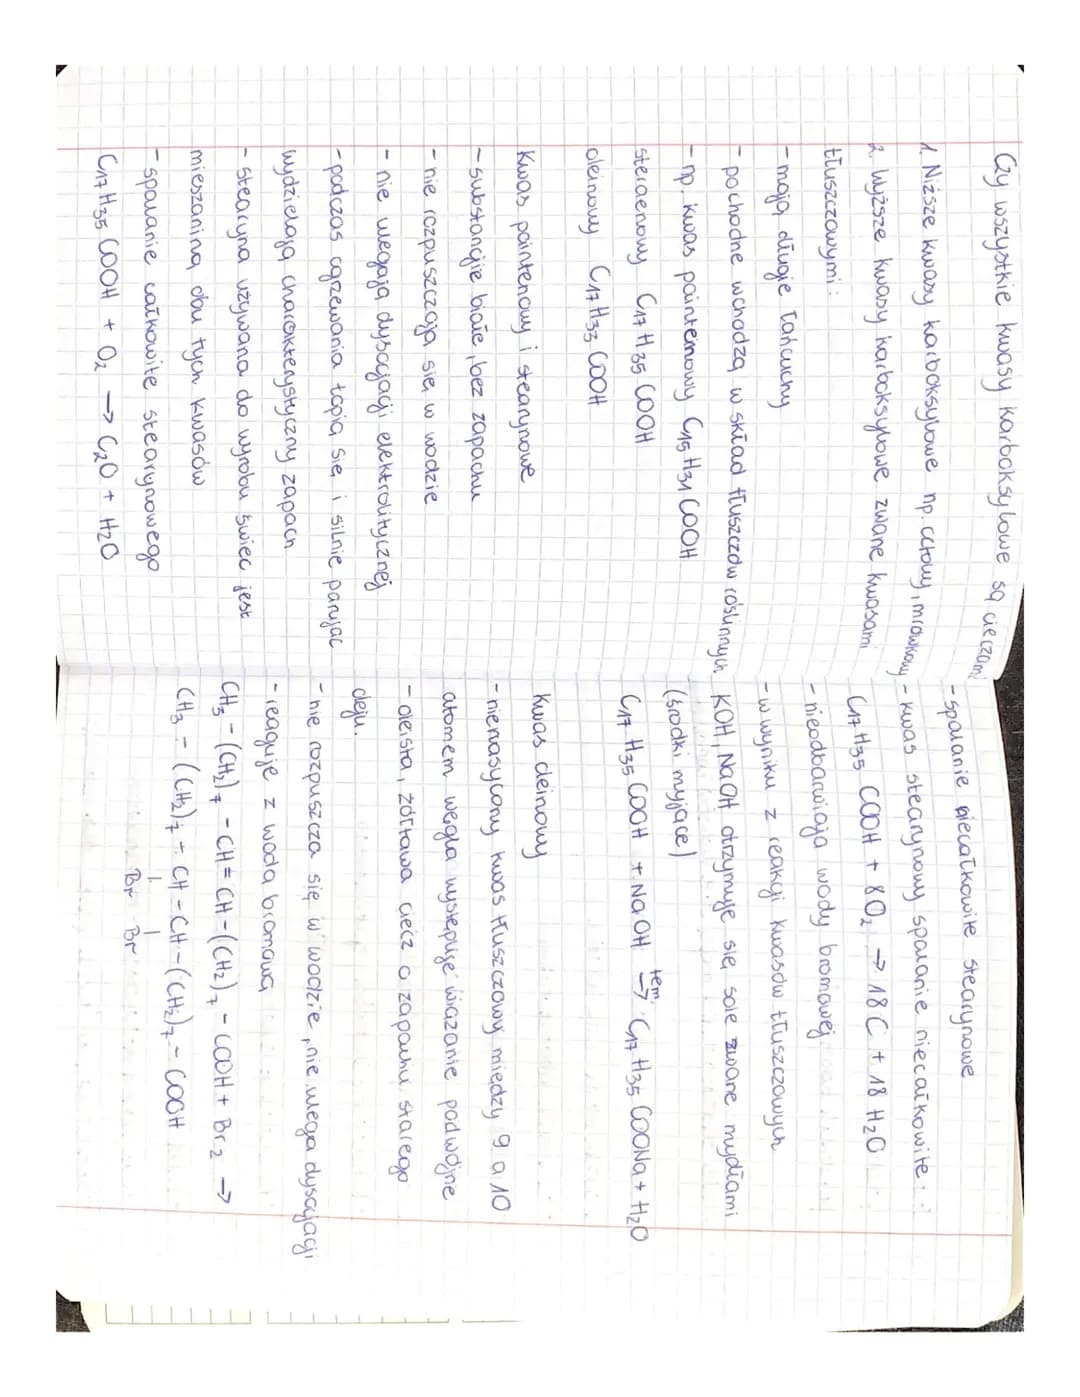 Czy wszystkie kwasy karboksylowe są cieczami
1. Niższe kwasy karboksylowe np. octowy, mrówkowy
2. Wyższe kwasy karboksylowe zwane kwasami
tłuszczowymi:
- mają długie łańcuchy
- pochodne wchodzą w skład tłuszczów roślinnych
- np. kwas paintemowy C15 H31 COOH
steraenowy C17 H35 COOH
oleinowy C17 H33 COOH
Kwas paintenowy i stearynowe
- substancjie białe, bez zapachu
- nie rozpuszczają się w wodzie
- nie ulegają dysocjacji elektrolitycznej
- podczas ogrzewania topią się i silnie parując
wydzielają charakterystyczny zapach
- stearyna używana do wyrobu świec jest
mieszaniną obu tych kwasów
- spalanie całkowite stearynowego
C17 H35 COOH + O2 → C2O + H2O
- spalanie niecałkowite stearynowe
- kwas stearynowy spalanie niecałkowite:
C17 H35 COOH + 8O2 → 18C + 18 H2O
- nieodbarwiają wody bromowej
- w wyniku z reakcji kwasów tłuszczowych
KOH, NaOH otrzymuje się sole zwane mydłami
(środki myjące)
C17 H35 COOH + NaOH tem. → C17 H35 COONa + H2O
Kwas oleinowy
- nienasycony kwas tłuszczowy między 9 a 10
atomem węgla występuje wiązanie podwójne
- oleista, żółtawa ciecz o zapachu starego
oleju.
- nie rozpuszcza się w wodzie, nie ulega dysocjacji
- reaguje z wodą bromową
CH3 - (CH2)7 - CH = CH - (CH2)7 - COOH + Br2 →
CH3 - (CH2)7 - CH - CH - (CH2)7 - COOH
Br Br